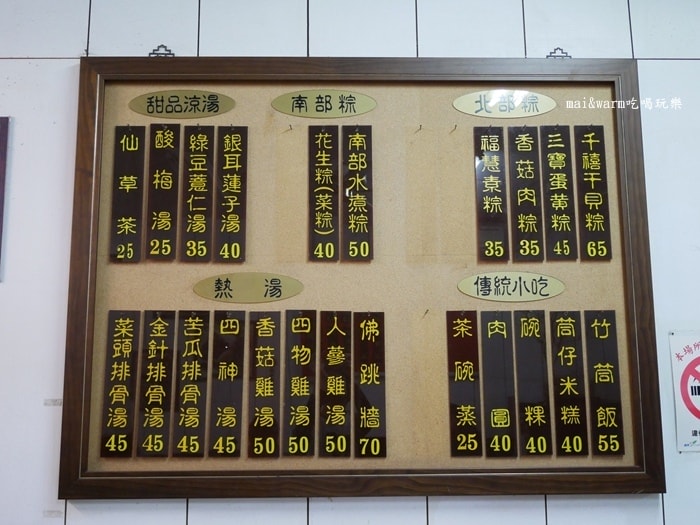 mai&warm吃喝玩樂
北部粽
千禧干貝粽 65
三寶蛋黃粽 45
香菇肉粽 35
福慧素粽 35
南部粽
南部水煮粽 50
花生粽(菜粽) 40
甜品涼湯
銀耳蓮子湯 40
綠豆薏仁湯 35
酸梅湯 25
仙草茶 25
傳統小吃
竹筒飯 55
筒仔米糕 40
碗粿 40
肉圓 40
茶碗蒸 25
熱湯
佛跳牆 70
人蔘雞湯 50
四物雞湯 50
香菇雞湯 50
四神湯 45
苦瓜排骨湯 45
金針排骨湯 45
菜頭排骨湯 45
本場所